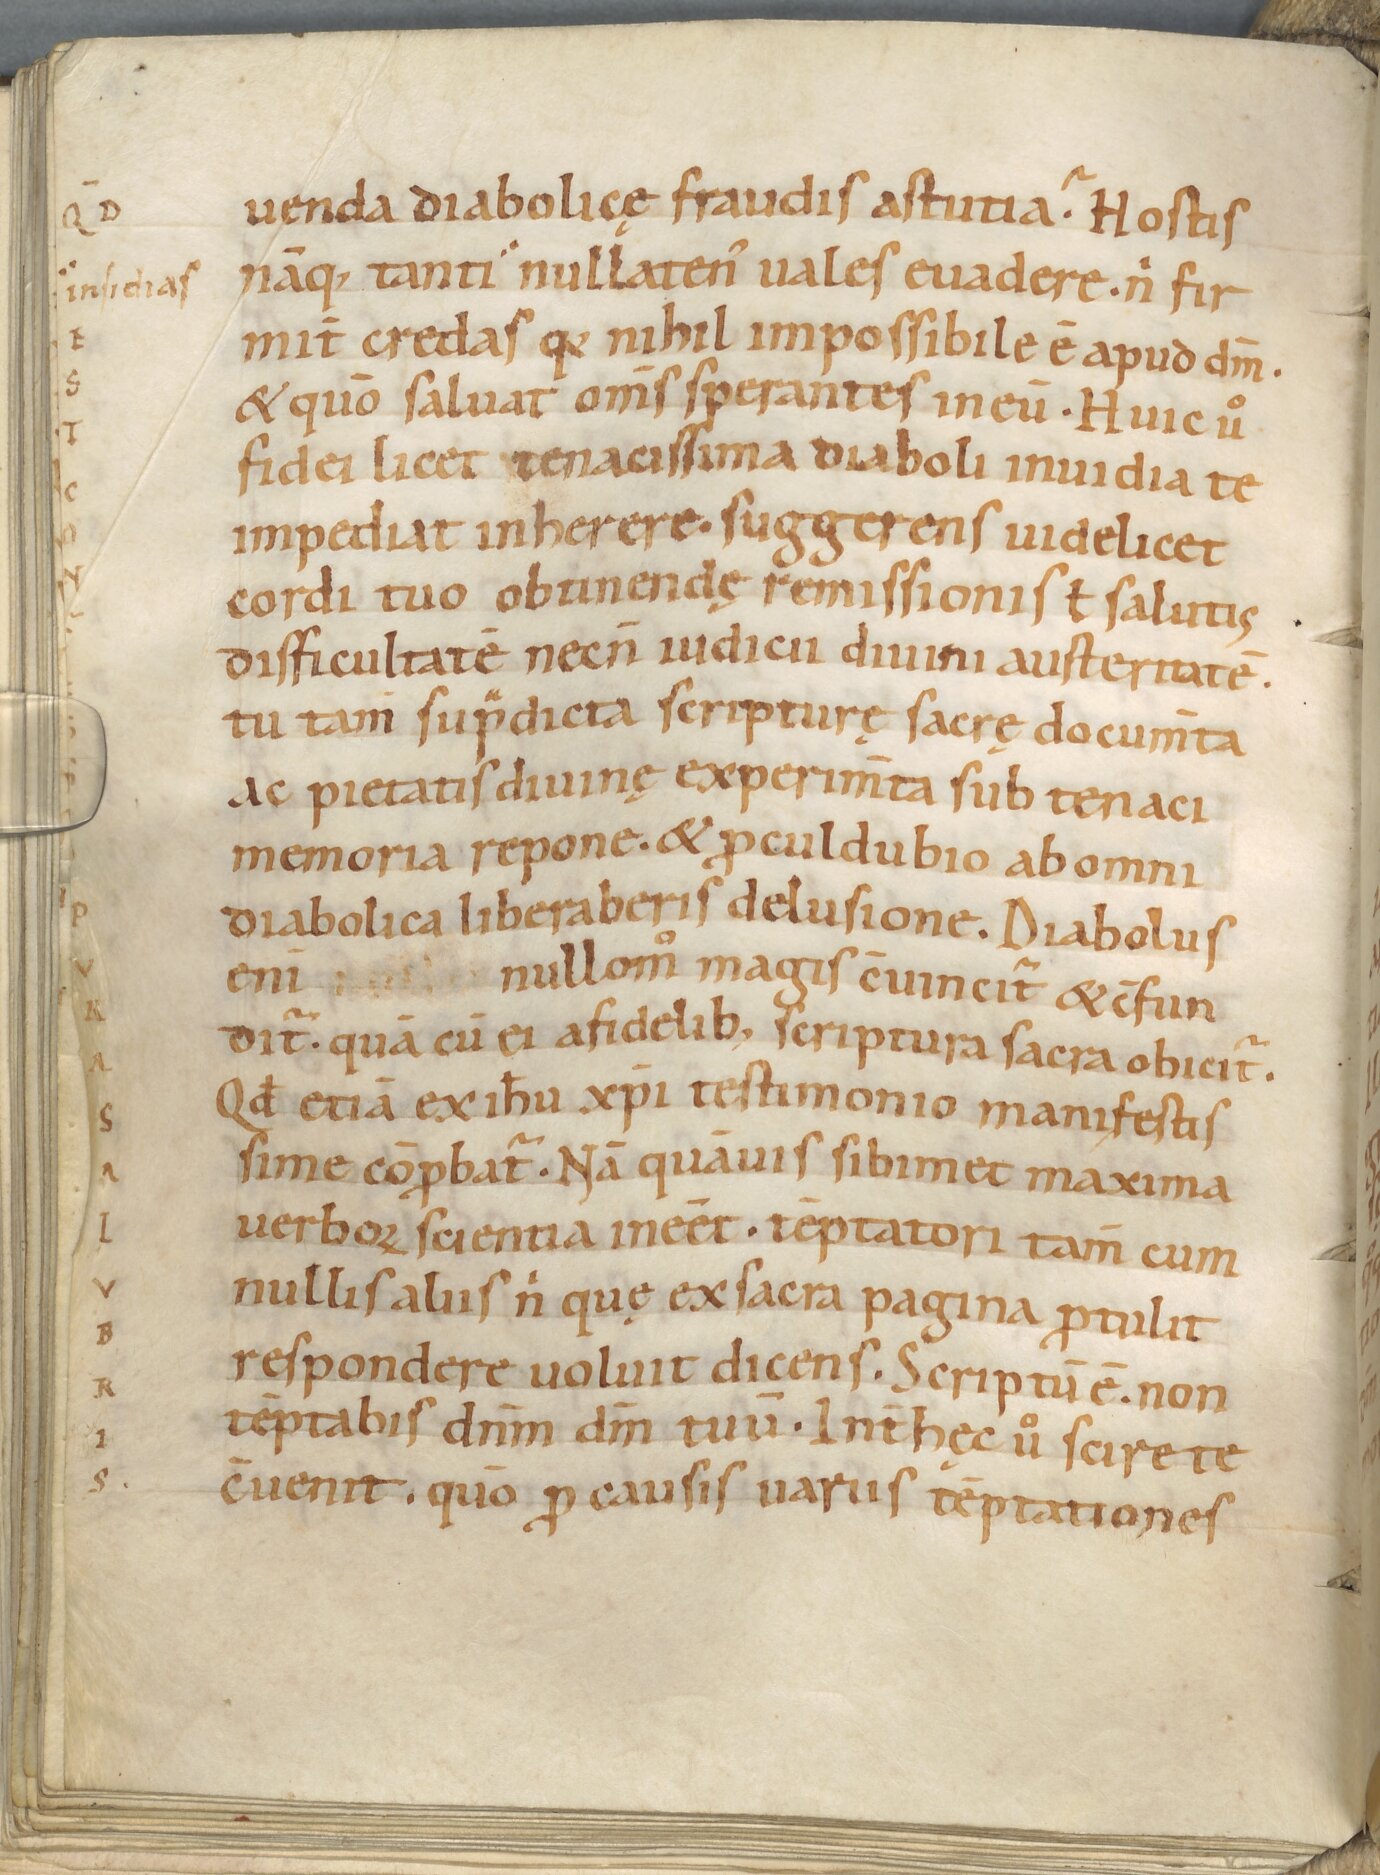 Q̄D
uenda diabolicę fraudis astutia. Hostis
insidias
nāq, tanti nullaten᾿ uales euadere. n̊ fir
mit̄ credas q nihil impossibile ē apud dm̄.
& quō saluat om̄s sperantes in eū. Huic ů
fidei licet tenacissima diaboli inuidia te
impediat inherere. suggerens uidelicet
cordi tuo obtinendę remissionis ł salutis
difficultatē necn̄ iudicii diuini austeritatē.
tu tam̄ sup̄dicta scripturę sacrę docum̄ta
ac pietatis diuinę experim̄ta sub tenaci
memoria repone. & ꝓculdubio ab omni
diabolica liberaberis delusione. Diabolus
eni̅ nullom̊ magis c̄uincit᷑ & c̄fun
dit᷑. quā cū ei a fidelib, scriptura sacra obicit᷑.
Qđ etiā ex ihu xp̄i testimonio manifestis
sime cōꝓbat᷑. Nā quāuis sibimet maxima
uerboꝝ scientia ineēt. tēptatori tam̄ cum
nullis aliis n̊ quę ex sacra pagina ꝓtulit
respondere uoluit dicens. Scriptū ē. non
tēptabis dn̄m dm̄ tuū. Int̄ hęc ů scire te
c̄uenit. quō ꝓ causis uariis tēptationes
E
S
T
C
P
V
K
A
S
A
L
V
B
R
I
S.